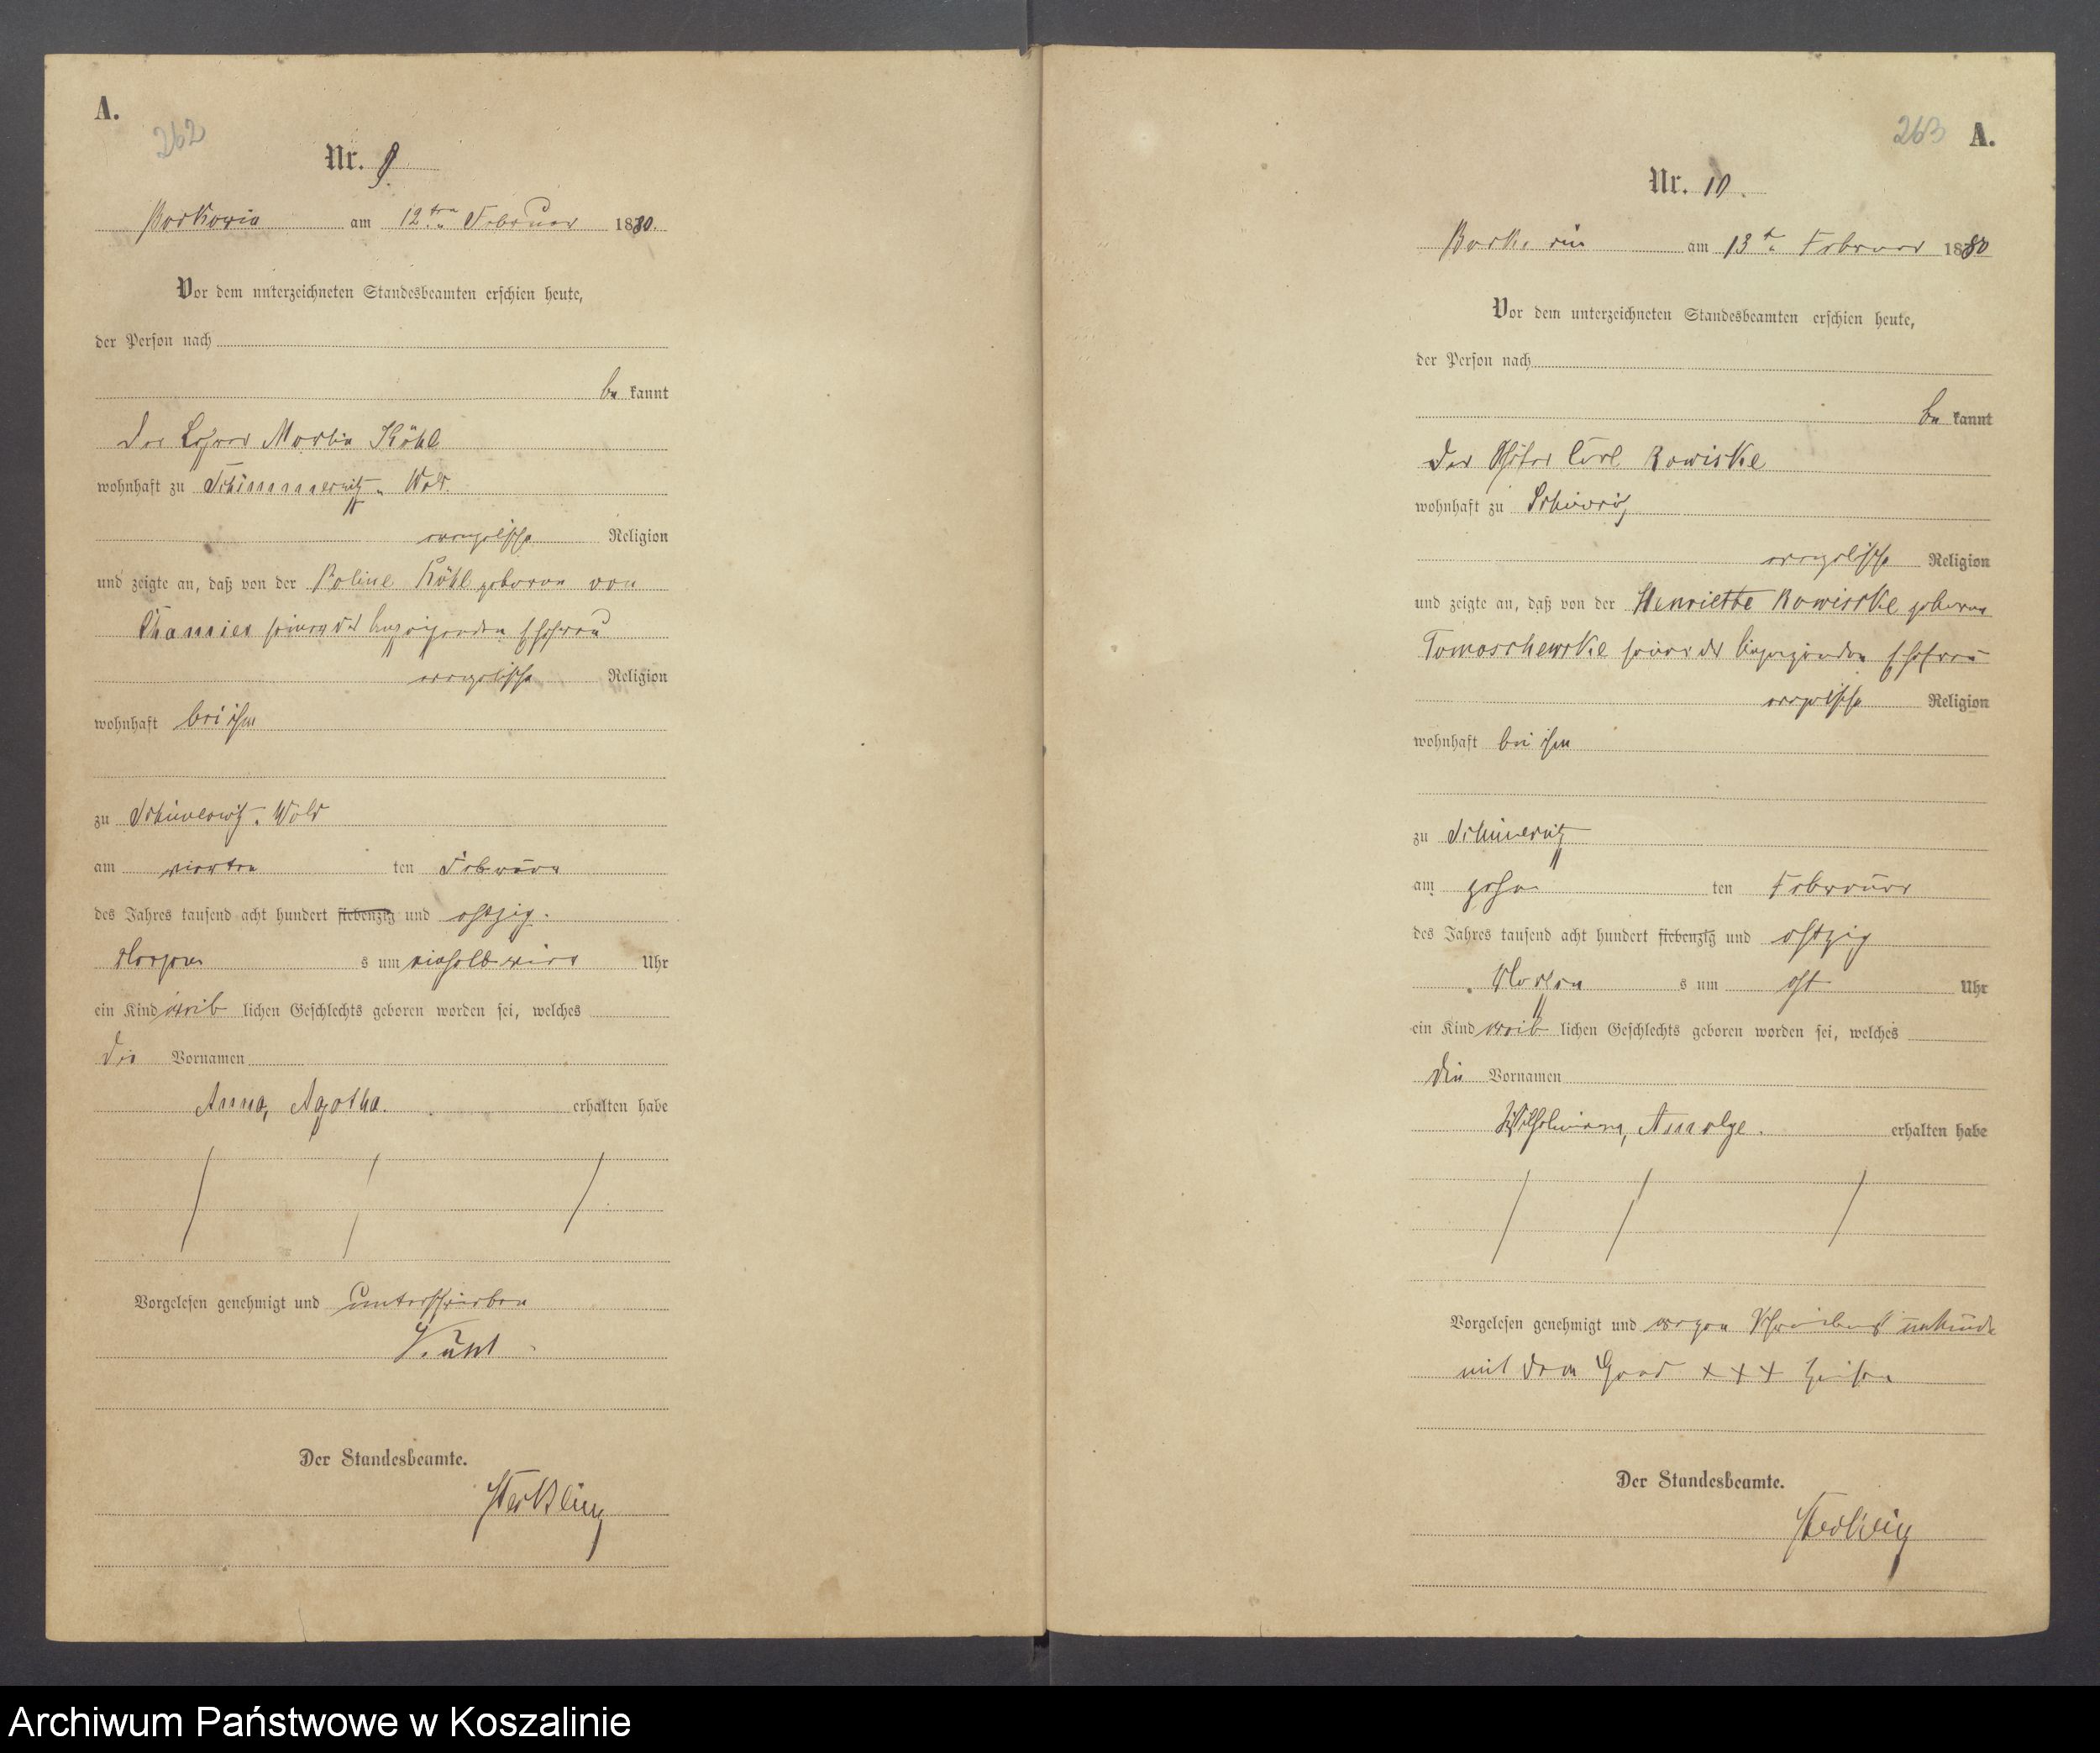 A.
262
Nr. 9.
Borkowin am 12ten Februar 1880.
Vor dem unterzeichneten Standesbeamten erschien heute,
der Person nach
be kannt
der Lehrer Martin Kühl
wohnhaft zu Wald.
evangelischer Religion
und zeigte an, daß von der Kühl geboren von
seiner des Anzeigenden Ehefrau
evangelischer Religion
wohnhaft bei ihm
zu Wald
am vierten ten Februar
des Jahres tausend acht hundert siebenzig und achtzig.
Morgen s um einhalb vier Uhr
ein Kind weib lichen Geschlechts geboren worden sei, welches
die Vornamen
Anna, Agatha. erhalten habe
Vorgelesen genehmigt und unterschrieben
Kühl
Der Standesbeamte.
263 A.
Nr. 10.
Borkowin am 13t. Februar 1880
Vor dem unterzeichneten Standesbeamten erschien heute,
der Person nach
be kannt
der Carl
wohnhaft zu
evangelischer Religion
und zeigte an, daß von der Henriette geborene
Tomaschewske seiner des Anzeigenden Ehefrau
evangelischer Religion
wohnhaft bei ihm
zu
am zehn ten Februar
des Jahres tausend acht hundert siebenzig und achtzig
Morgen s um acht Uhr
ein Kind weib lichen Geschlechts geboren worden sei, welches
die Vornamen
erhalten habe
Vorgelesen genehmigt und wegen Schreibens unkunde
mit dem Hand +++ Zeichen
Der Standesbeamte.
Archiwum Państwowe w Koszalinie